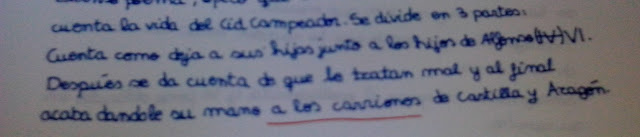 cuenta la vida del Cid Campeador. Se divide en 3 partes:
Cuenta como deja a sus hijas junto a los hijos de Alfonso (IV) VI.
Despues se da cuenta de que le tratan mal y al final
acaba dandole su mano a los carriones de Castilla y Aragón.